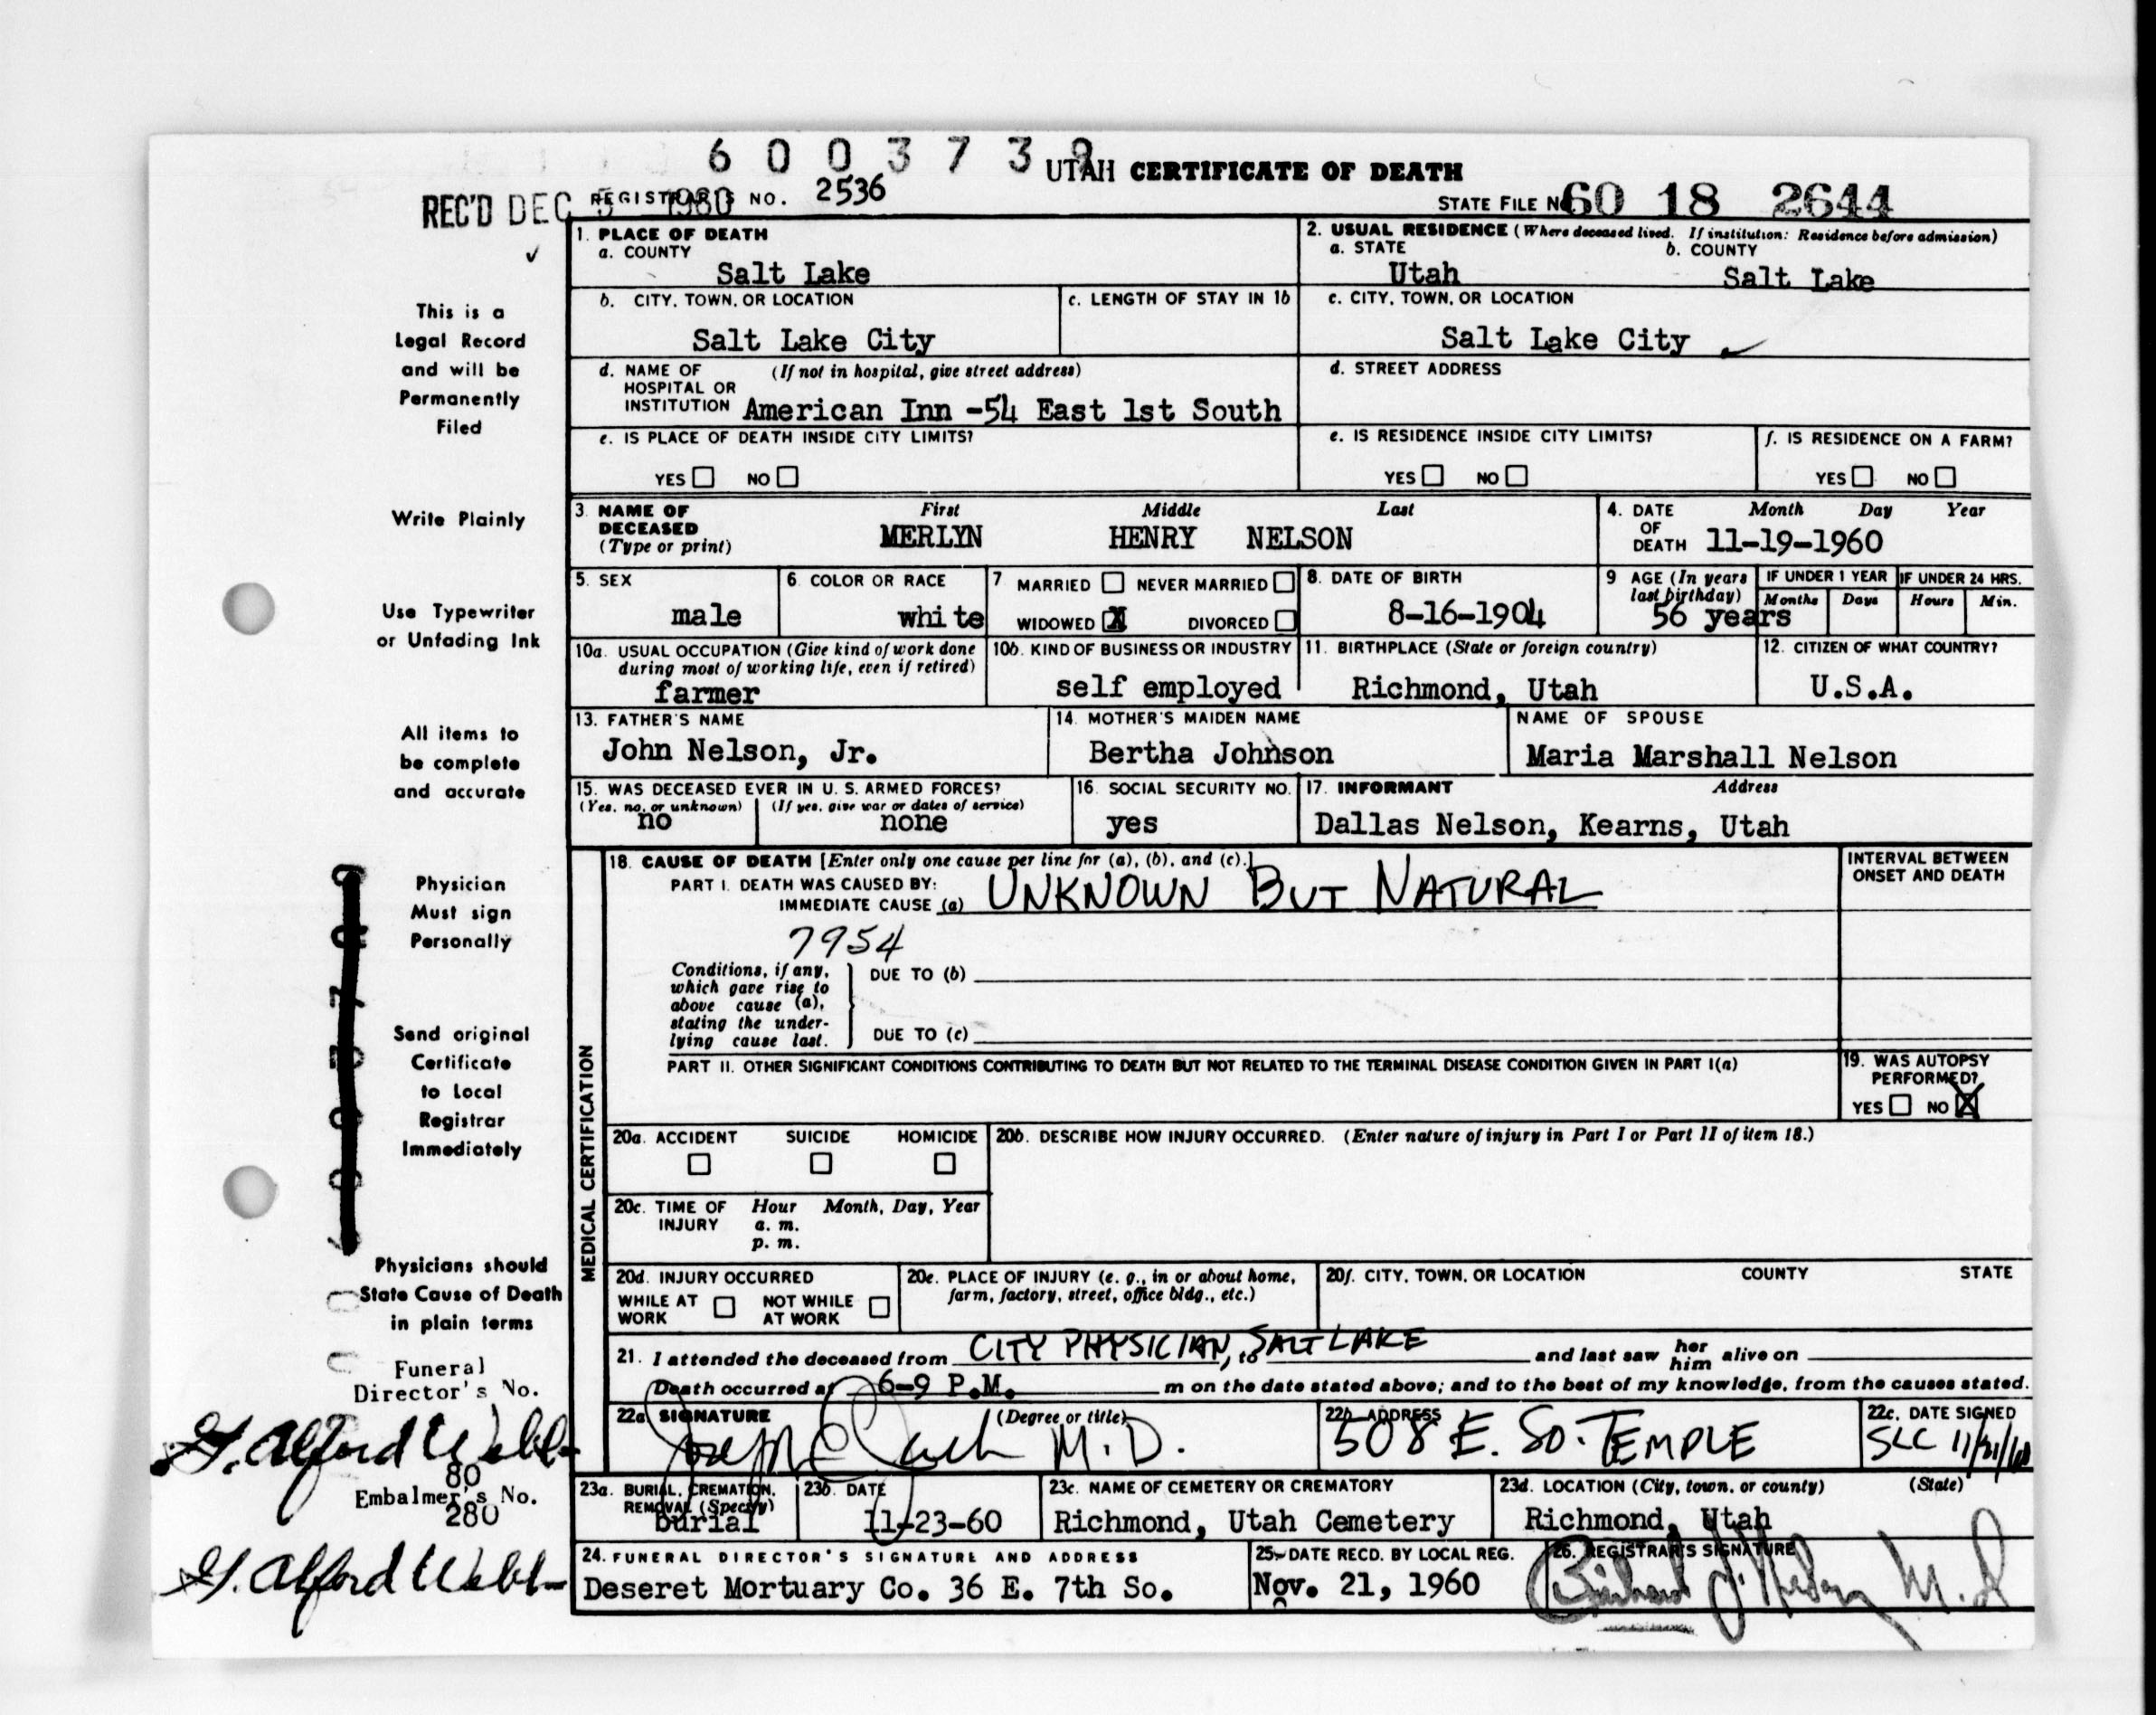 6 0 0 3 7 3 9
UTAH CERTIFICATE OF DEATH
REC'D DEC 5 1960 REGISTRAR'S NO. 2536
STATE FILE NO. 60 18 2644
1. PLACE OF DEATH
a. COUNTY
Salt Lake
2. USUAL RESIDENCE (Where deceased lived. If institution: Residence before admission)
a. STATE b. COUNTY
Utah Salt Lake
b. CITY, TOWN, OR LOCATION
Salt Lake City
c. LENGTH OF STAY IN 1b
c. CITY, TOWN, OR LOCATION
Salt Lake City
d. NAME OF (If not in hospital, give street address)
HOSPITAL OR
INSTITUTION American Inn -54 East 1st South
d. STREET ADDRESS
e. IS PLACE OF DEATH INSIDE CITY LIMITS?
YES NO
e. IS RESIDENCE INSIDE CITY LIMITS?
YES NO
f. IS RESIDENCE ON A FARM?
YES NO
3. NAME OF DECEASED
(Type or print)
First Middle Last
MERLYN HENRY NELSON
4. DATE OF DEATH
Month Day Year
11-19-1960
5. SEX
male
6. COLOR OR RACE
white
7. MARRIED NEVER MARRIED
WIDOWED X DIVORCED
8. DATE OF BIRTH
8-16-1904
9 AGE (In years last birthday)
56 years
IF UNDER 1 YEAR IF UNDER 24 HRS.
Months Days Hours Min.
10a. USUAL OCCUPATION (Give kind of work done
during most of working life, even if retired)
farmer
10b. KIND OF BUSINESS OR INDUSTRY
self employed
11. BIRTHPLACE (State or foreign country)
Richmond, Utah
12. CITIZEN OF WHAT COUNTRY?
U.S.A.
13. FATHER'S NAME
John Nelson, Jr.
14. MOTHER'S MAIDEN NAME
Bertha Johnson
NAME OF SPOUSE
Maria Marshall Nelson
15. WAS DECEASED EVER IN U. S. ARMED FORCES?
(Yes, no, or unknown) (If yes, give war or dates of service)
no none
16. SOCIAL SECURITY NO.
yes
17. INFORMANT Address
Dallas Nelson, Kearns, Utah
MEDICAL CERTIFICATION
18. CAUSE OF DEATH [Enter only one cause per line for (a), (b), and (c).]
PART I. DEATH WAS CAUSED BY:
IMMEDIATE CAUSE (a) UNKNOWN BUT NATURAL
7954
INTERVAL BETWEEN
ONSET AND DEATH
Conditions, if any,
which gave rise to
above cause (a),
stating the under-
lying cause last.
DUE TO (b)
DUE TO (c)
PART II. OTHER SIGNIFICANT CONDITIONS CONTRIBUTING TO DEATH BUT NOT RELATED TO THE TERMINAL DISEASE CONDITION GIVEN IN PART I(a)
19. WAS AUTOPSY
PERFORMED?
YES NO X
20a. ACCIDENT SUICIDE HOMICIDE
20b. DESCRIBE HOW INJURY OCCURRED. (Enter nature of injury in Part I or Part II of item 18.)
20c. TIME OF INJURY
Hour Month, Day, Year
a. m.
p. m.
20d. INJURY OCCURRED
WHILE AT WORK NOT WHILE AT WORK
20e. PLACE OF INJURY (e. g., in or about home,
farm, factory, street, office bldg., etc.)
20f. CITY, TOWN, OR LOCATION COUNTY STATE
21. I attended the deceased from CITY PHYSICIAN, to SALT LAKE and last saw her him alive on
Death occurred at 6-9 P.M. m on the date stated above; and to the best of my knowledge, from the causes stated.
22a SIGNATURE (Degree or title)
M.D.
22b. ADDRESS
508 E. SO. TEMPLE
22c. DATE SIGNED
SLC 11/21/60
23a. BURIAL, CREMATION,
REMOVAL (Specify)
burial
23b. DATE
11-23-60
23c. NAME OF CEMETERY OR CREMATORY
Richmond, Utah Cemetery
23d. LOCATION (City, town, or county) (State)
Richmond, Utah
24. FUNERAL DIRECTOR'S SIGNATURE AND ADDRESS
Deseret Mortuary Co. 36 E. 7th So.
25. DATE RECD. BY LOCAL REG.
Nov. 21, 1960
26. REGISTRAR'S SIGNATURE
This is a
Legal Record
and will be
Permanently
Filed
Write Plainly
Use Typewriter
or Unfading Ink
All items to
be complete
and accurate
Physician
Must sign
Personally
Send original
Certificate
to Local
Registrar
Immediately
Physicians should
State Cause of Death
in plain terms
Funeral
Director's No.
G. Alford Webb
80
Embalmer's No.
280
G. Alford Webb